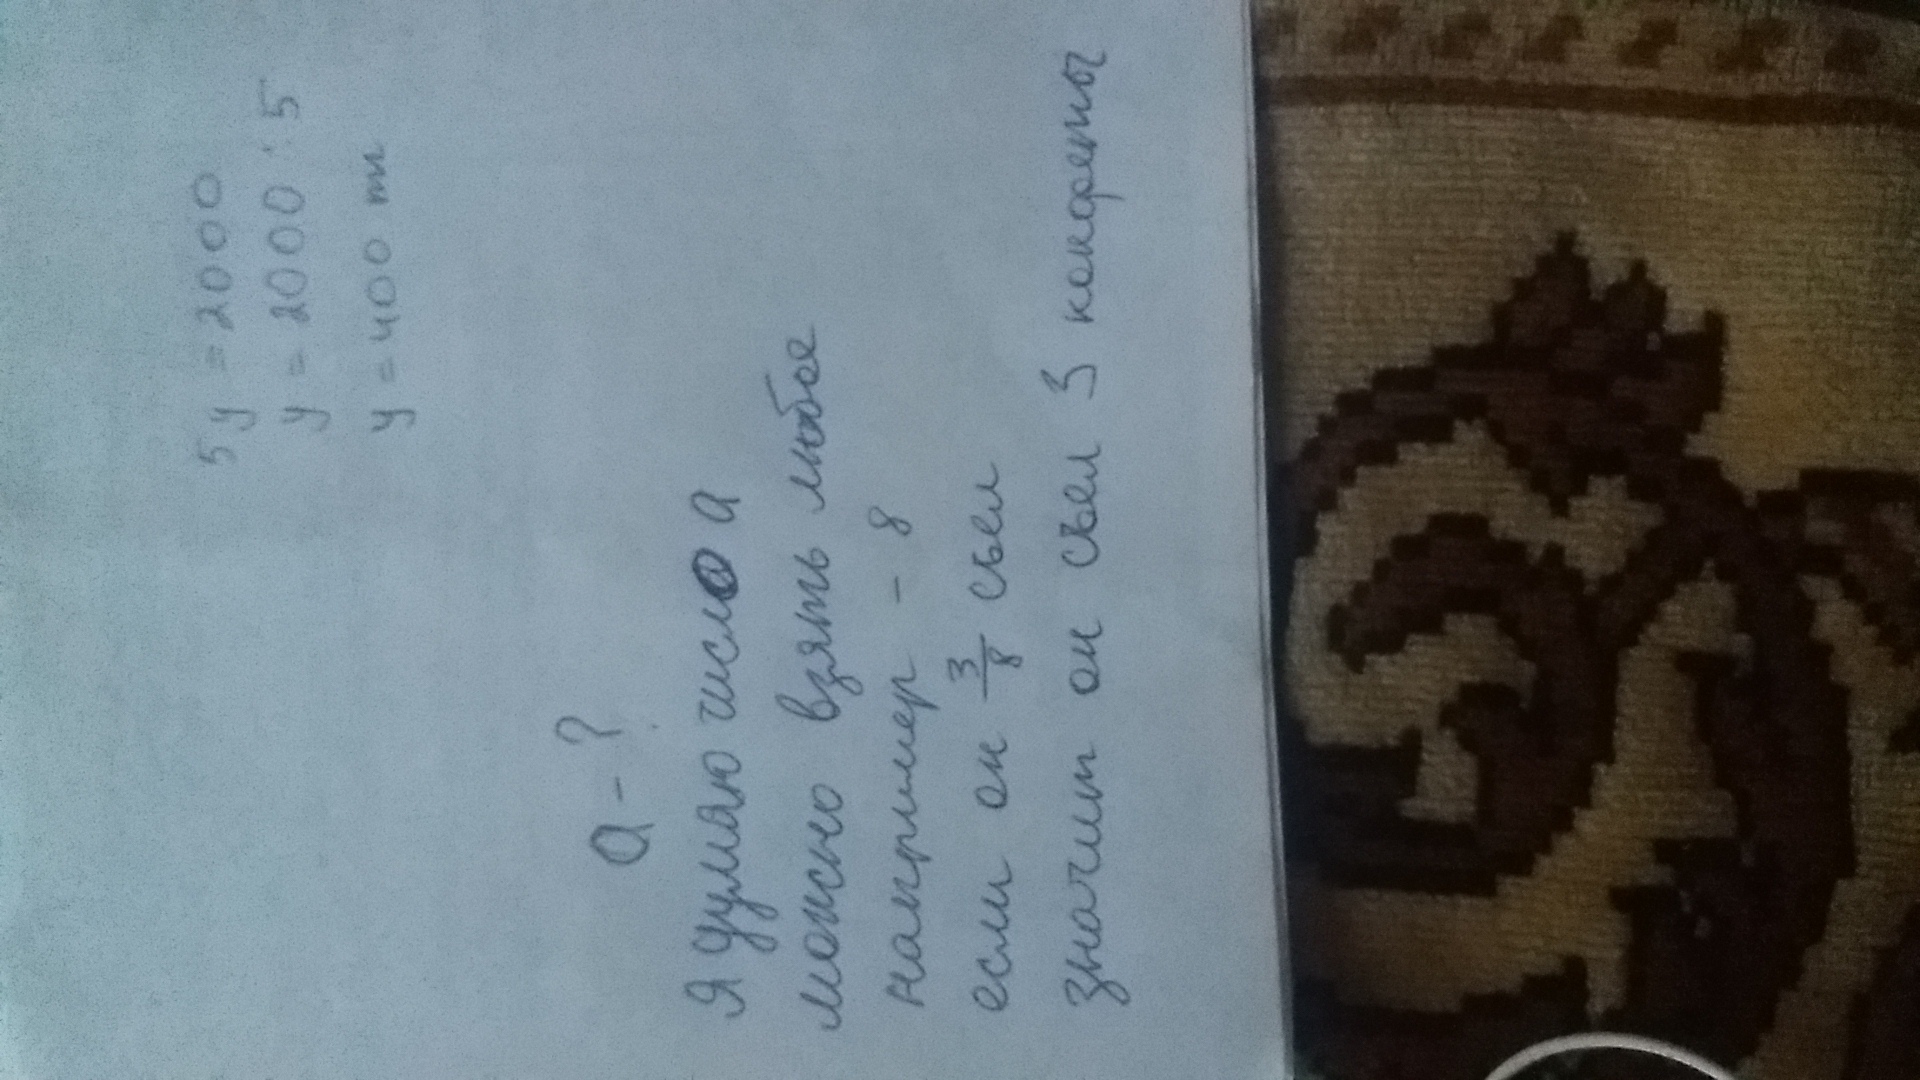 5y = 2000
y = 2000 : 5
y = 400 т
а - ?
Я думаю число а
можно взять любое
например - 8
если он 3/8 съел
значит он съел 3 конфеты